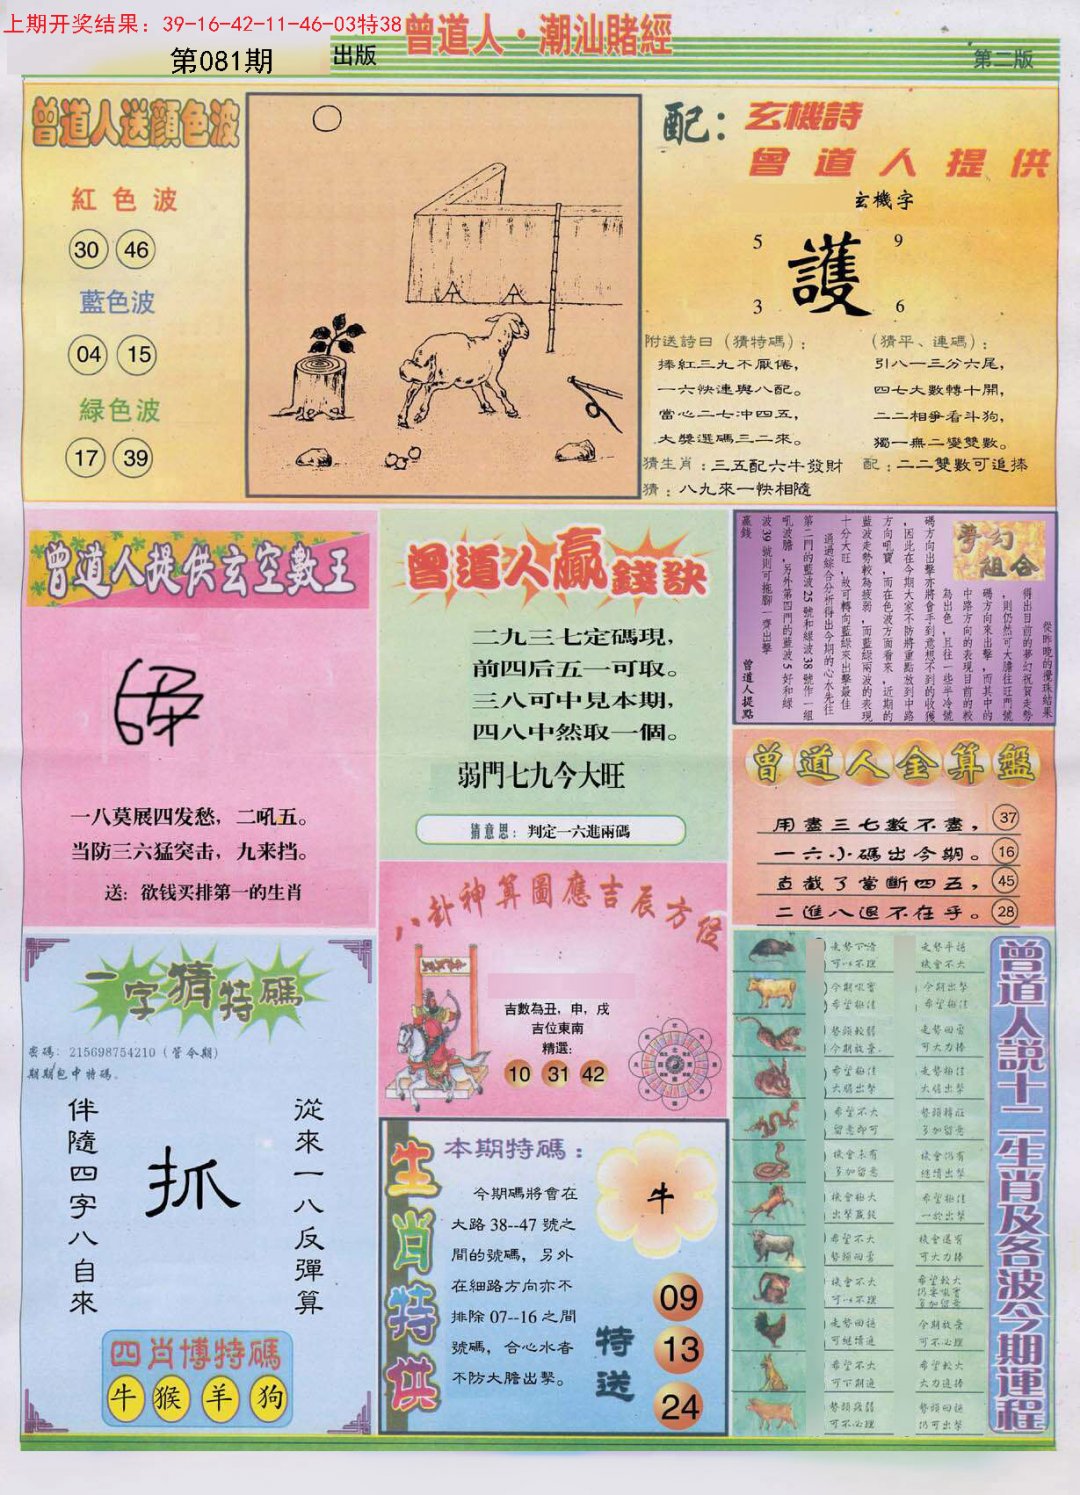 上期开奖结果：39-16-42-11-46-03特38
第081期
出版
曾道人·潮汕賭經
第二版
曾道人送顏色波
紅色波
30 46
藍色波
04 15
緑色波
17 39
配：玄機詩
曾道人提供
玄機字
5 9
護
3 6
附送詩曰（猜特碼）：
捧紅三九不厭倦，
一六快連與八配。
當心二七冲四五，
大獎選碼三二來。
（猜平、連碼）：
引八一三分六尾，
四七大數轉十開，
二二相爭看斗狗，
獨一無二變雙數。
猜生肖：三五配六牛發財
配：二二雙數可追捧
猜：八九來一快相隨
曾道人提供玄空數王
一八莫展四发愁，二吼五。
当防三六猛突击，九来挡。
送：欲钱买排第一的生肖
曾道人贏錢訣
二九三七定碼現，
前四后五一可取。
三八可中見本期，
四八中然取一個。
弱門七九今大旺
猜意思：判定一六進兩碼
夢幻組合
從昨晚的攪珠結果
得出目前的夢幻祝賀走勢
，則仍然可大膽往旺門號
碼方向來出擊，而其中的
中路方向的表現目前的較
為出色，且往一些半冷號
碼方向出擊亦將會手到意想不到的收獲
，因此在今期大家不防將重點放到中路
方向吼寶，而在色波方面看來，近期的
藍波走勢較為疲弱，而藍綠兩波的表現
十分大旺，故可轉向藍綠來出擊最佳
通過綜合分析得出今期的心水先往
第二門的藍波25號和綠波38號作一組
吼波膽，另外第四門的藍波5好和綠
波39號則可拖腳一齊出擊
贏錢
曾道人提點
曾道人金算盤
用盡三七數不盡， 37
一六小碼出今期。 16
直截了當斷四五， 45
二進八退不在乎。 28
八卦神算圖應吉辰方位
吉數為丑，申，戌
吉位東南
精選：
10 31 42
一字猜特碼
密碼：215698754210（管令期）
期期包中特碼。
從來一八反彈算
抓
伴隨四字八自來
四肖博特碼
牛 猴 羊 狗
生肖特供
本期特碼：
今期碼將會在
大路38--47號之
間的號碼，另外
在細路方向亦不
排除07--16之間
號碼，合心水者
不防大膽出擊。
牛
特送
09
13
24
曾道人説十二生肖及各波今期運程